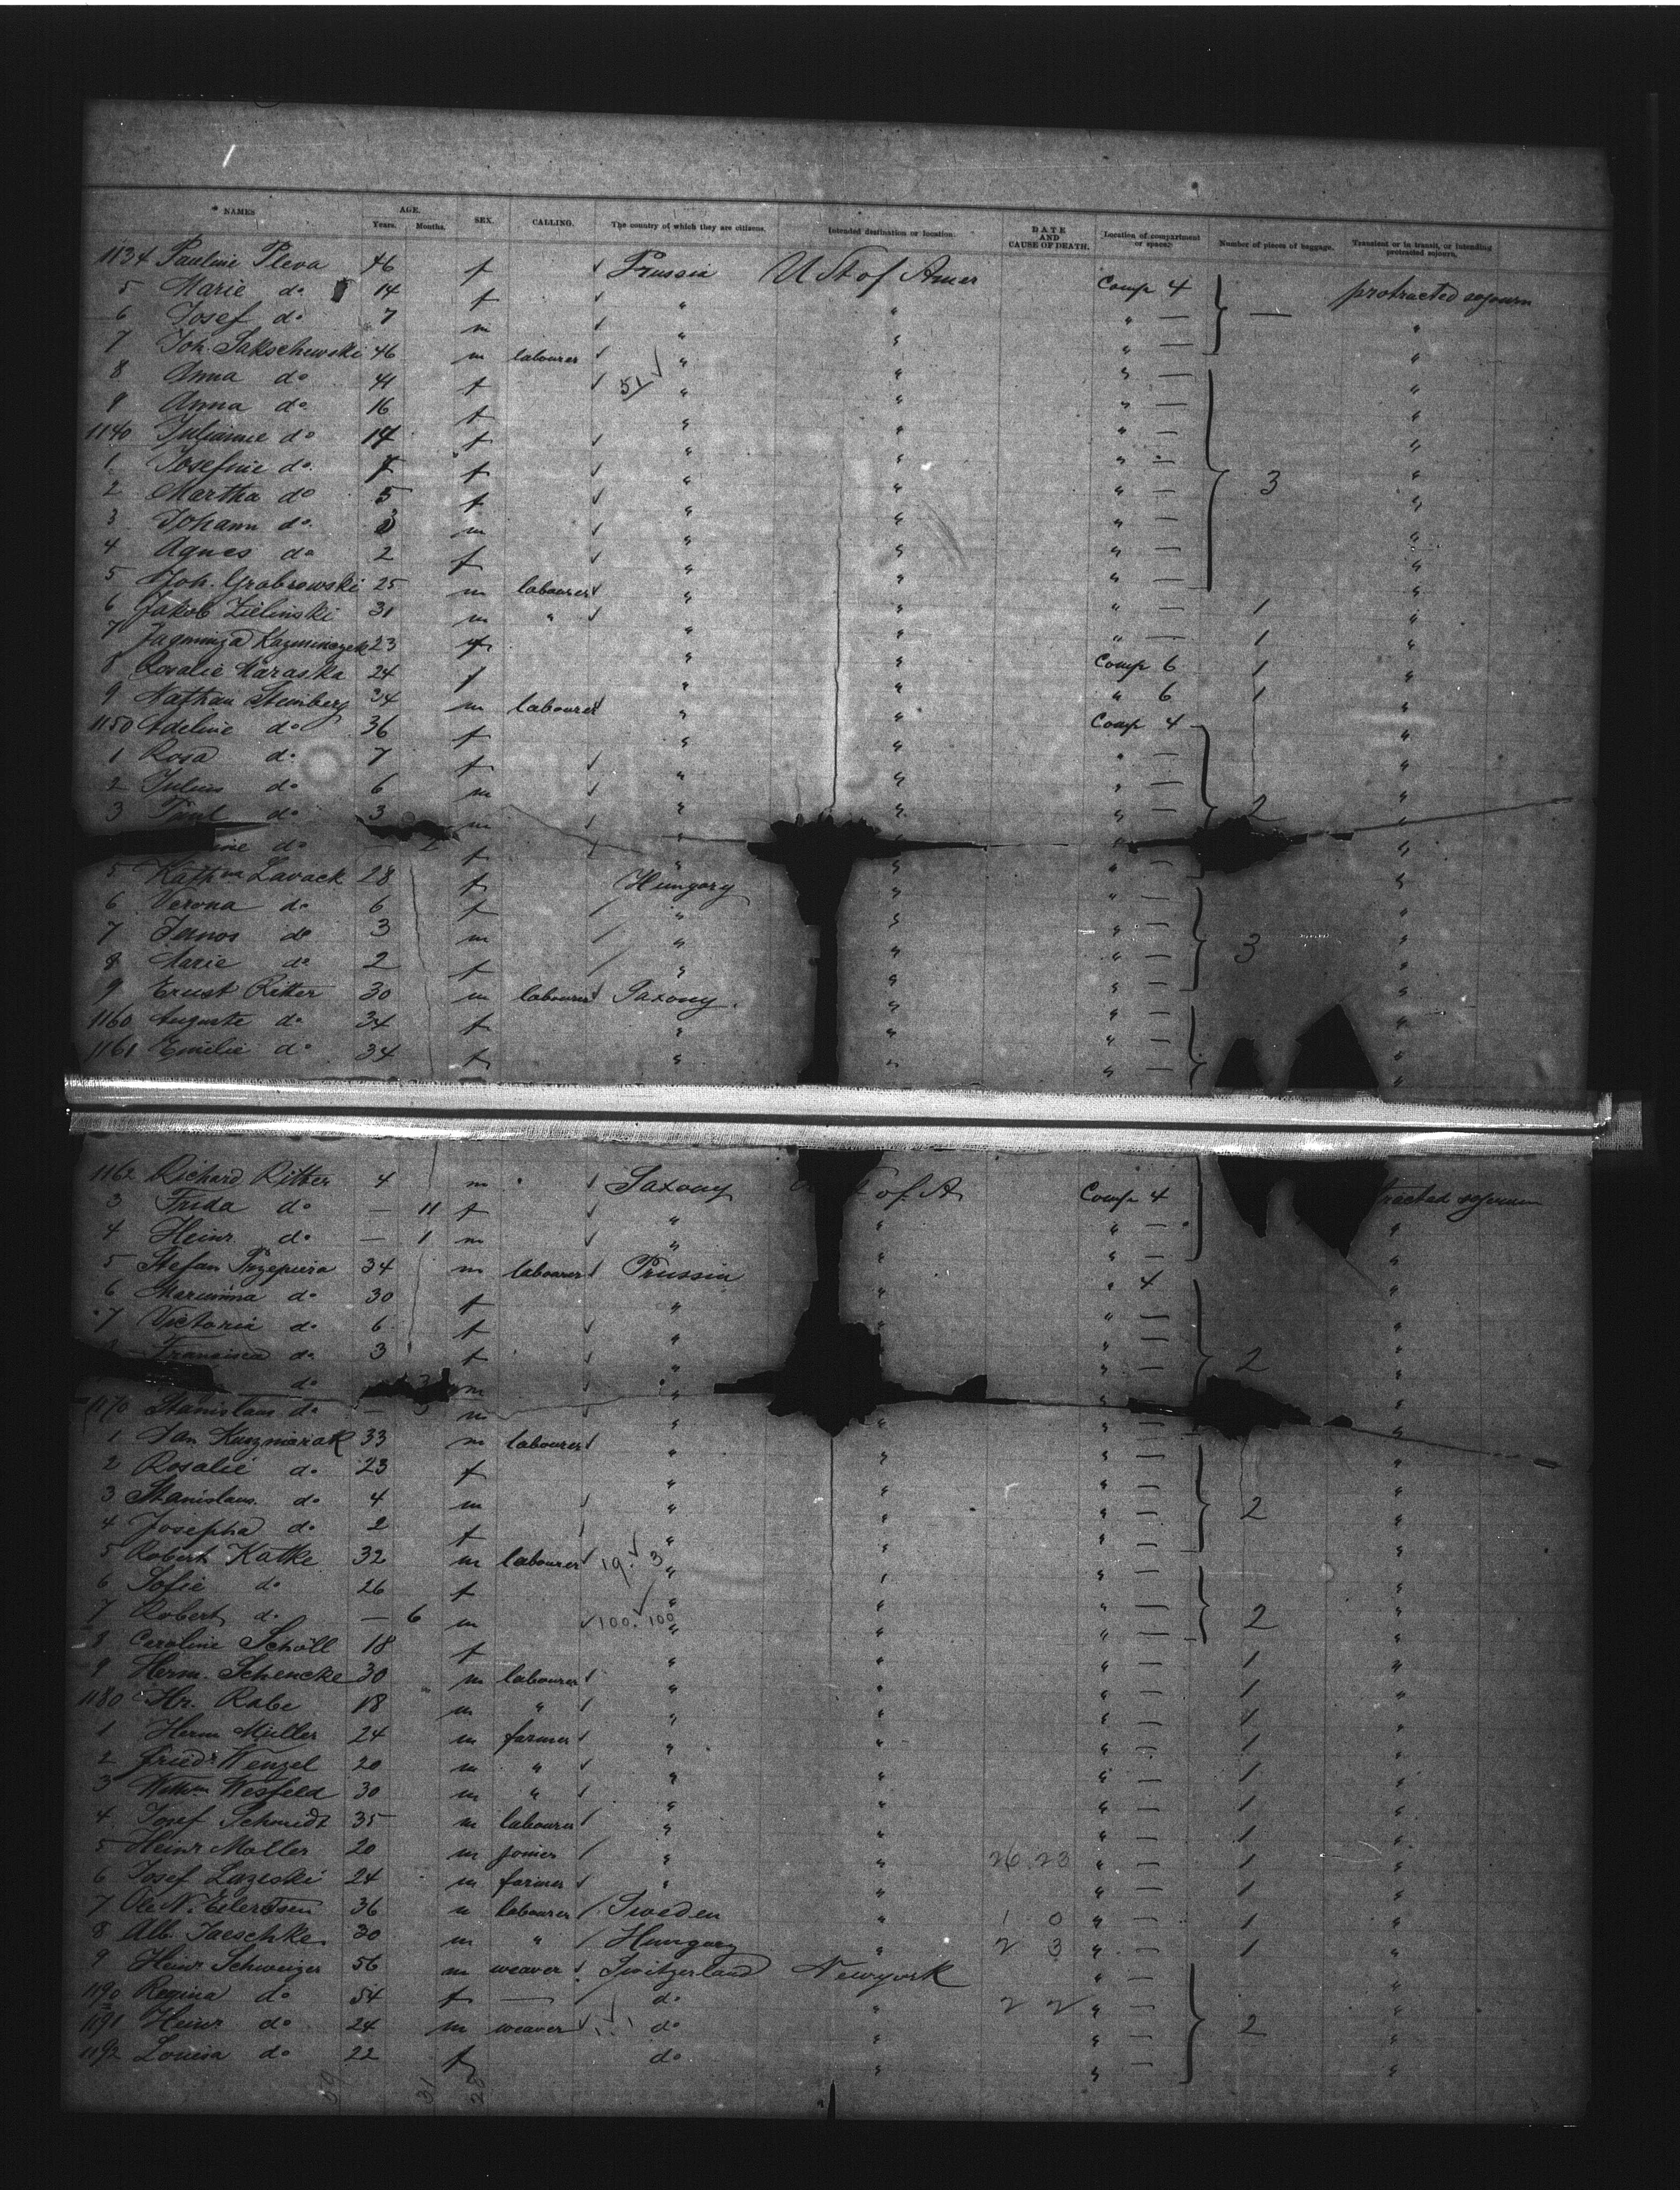 NAMES AGE. Years. Months. SEX. CALLING. The country of which they are citizens. Intended destination or location DATE AND CAUSE OF DEATH. Location of compartment or space. Number of pieces of baggage. Transient or in transit, or intending protracted sojourn.
1134 Pauline Pleva 46 f Prussia U St of Amer Comp 4 — protracted sojourn
5 Marie do 14 f " " " — "
6 Josef do 7 m " " " — "
7 Joh. Sakschewski 46 m labourer " " " — "
8 Anna do 41 f " " " — "
9 Anna do 16 f " " " — "
1140 Julianne do 14 f " " " — "
1 Josefine do 7 f " " " — 3 "
2 Martha do 5 f " " " — "
3 Johann do 3 m " " " — "
4 Agnes do 2 f " " " — "
5 Joh. Grabrowski 25 m labourer " " " — 1 "
6 Jakob Zielinski 31 m " " " " — 1 "
7 23 f " " Comp 6 1 "
8 Rosalie Maraska 24 f " " " 6 1 "
9 Nathan Steinberg 34 m labourer " " Comp 4 "
1150 Adeline do 36 f " " " — "
1 Rosa do 7 f " " " — "
2 Julius do 6 m " " " — 2 "
3 Paul do 3 m " " " — "
do f " " " — "
5 Kathna Lavack 28 f Hungory " " — "
6 Verona do 6 f " " " — "
7 Janos do 3 m " " " — 3 "
8 Marie do 2 f " " " — "
9 Ernst Ritter 30 m labourer Saxony. " " — "
1160 Auguste do 34 f " " " — "
1161 Emilie do 34 f " " " — "
1162 Richard Ritter 4 m Saxony of A Comp 4 tracted sojourn
3 Frida do — 11 f " " " — "
4 Heinr. do — 1 m " " " — "
5 Stefan Przepiera 34 m labourer Prussia " " 4 "
6 Marianna do 30 f " " " — "
7 Victoria do 6 f " " " — "
Francisca do 3 f " " " — 2 "
do m " " — "
1170 Stanislaus do — m " " " — "
1 Jan Kuzmiarak 33 m labourer " " " — "
2 Rosalie do 23 f " " " — "
3 Stanislaus do 4 m " " " — 2 "
4 Josepha do 2 f " " " — "
5 Robert Katke 32 m labourer " " " — "
6 Sofie do 26 f " " " — "
7 Robert do — 6 m 100. 100 " " " — 2 "
8 Caroline Scholl 18 f " " " — 1 "
9 Herm. Schencke 30 m labourer " " " — 1 "
1180 Hr. Rabe 18 m " " " " — 1 "
1 Herm Müller 24 m farmer " " " — 1 "
2 Friedr Wenzel 20 m " " " " — 1 "
3 Wilhm Wesfeld 30 m " " " " — 1 "
4 Josef Schmidt 35 m labourer " " " — 1 "
5 Heinr Moller 20 m joiner " " 26.23 " — 1 "
6 Josef Lazeski 24 m farmer " " " — 1 "
7 Ole N. Eilertsen 36 m labourer Sweden " 1 0 " — 1 "
8 Alb. Jaeschke 30 m " Hungary " 2 3 " — 1 "
9 Heinr Schweizer 56 m weaver Switzerland Newyork " — "
1190 Regina do 54 f — do " 2 2 " — "
1191 Heinr do 24 m weaver do " " — 2 "
1192 Louisa do 22 f do " " — "
39 31 28